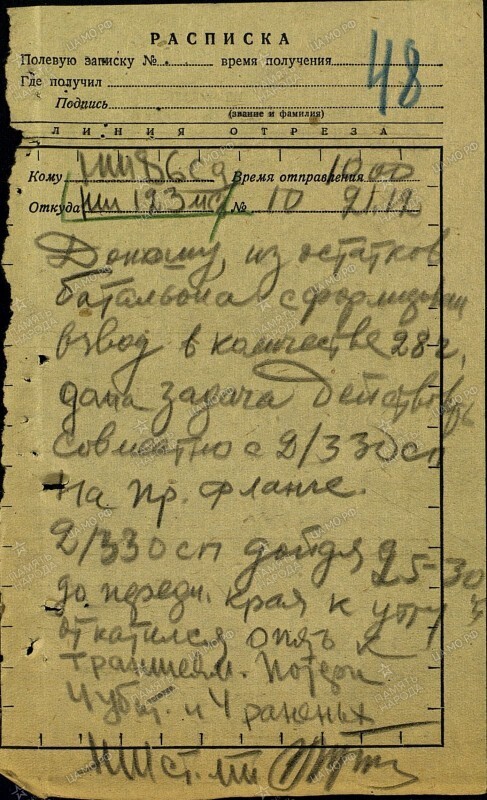 48
РАСПИСКА
Полевую записку № время получения
Где получил
Подпись
(звание и фамилия)
ЛИНИЯ ОТРЕЗА
Кому НШ 86 сд Время отправления 10 00
Откуда НШ 123 № 10 21.12
Доношу, из остатков
батальона сформирован
взвод в количестве 28 ч,
дана задача действовать
совместно с 2/330 сп
на пр. фланге.
2/330 сп дойдя
25-30
до передн. края к утру
откатился опять к
траншеям. Потери
4 убит. и 4 раненых
НШ ст. л-т